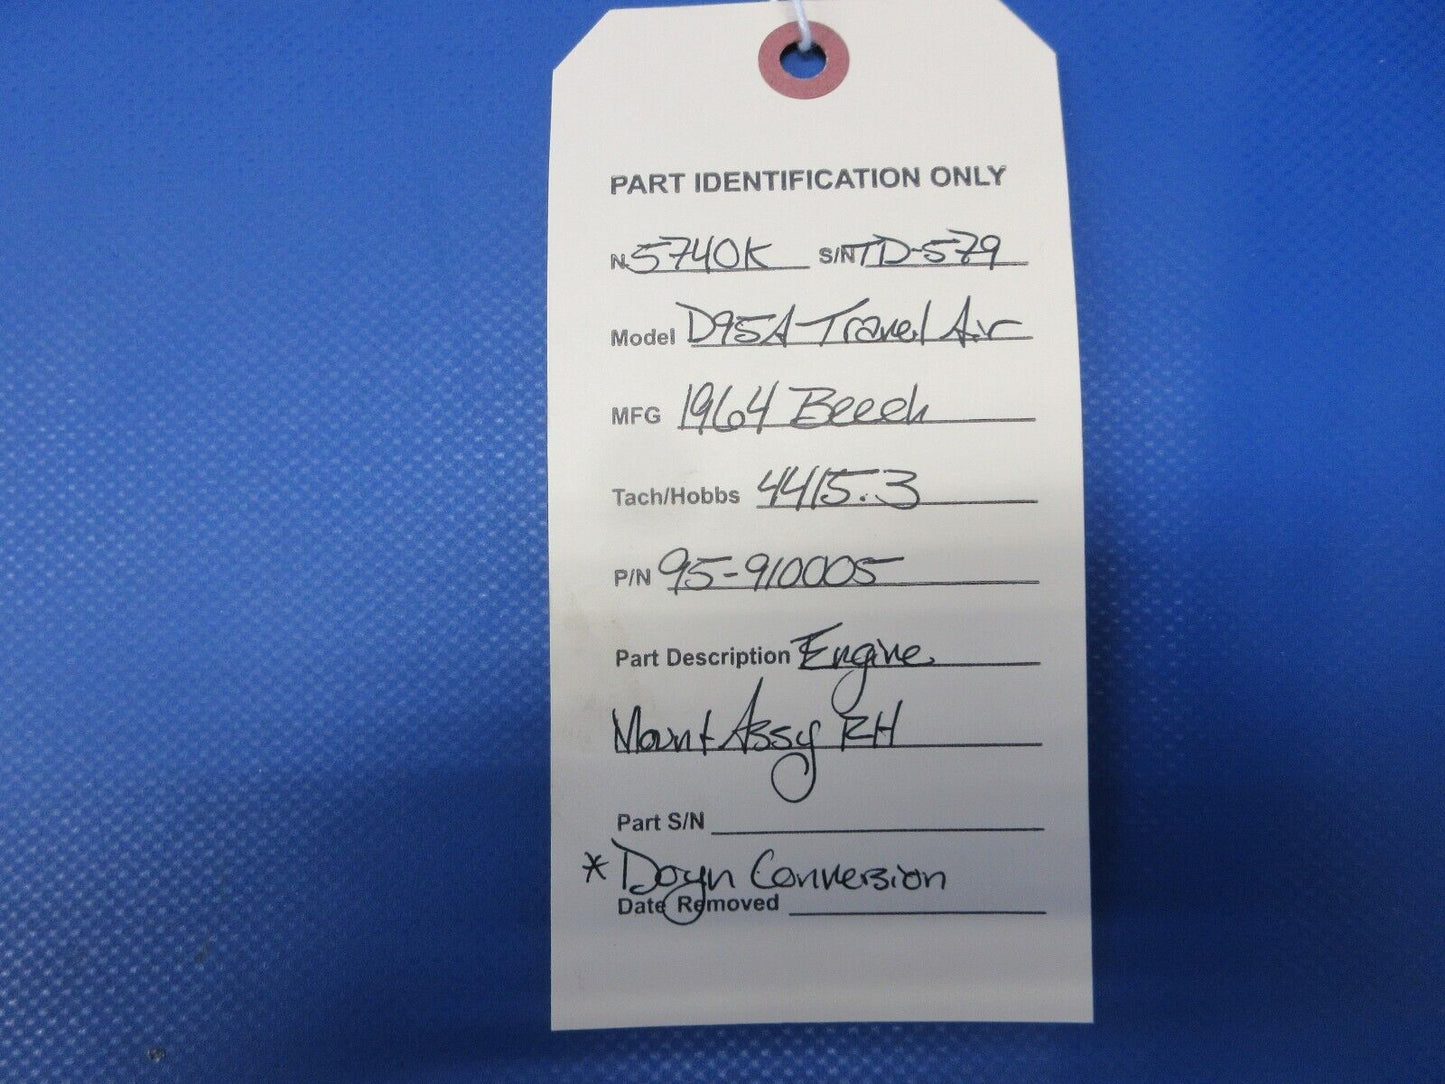 PART IDENTIFICATION ONLY
N 5740K S/N TD-579
Model D95A Travel Air
MFG 1964 Beech
Tach/Hobbs 4415.3
P/N 95-910005
Part Description Engine
Mount Assy RH
Part S/N
* Doyn Conversion
Date Removed